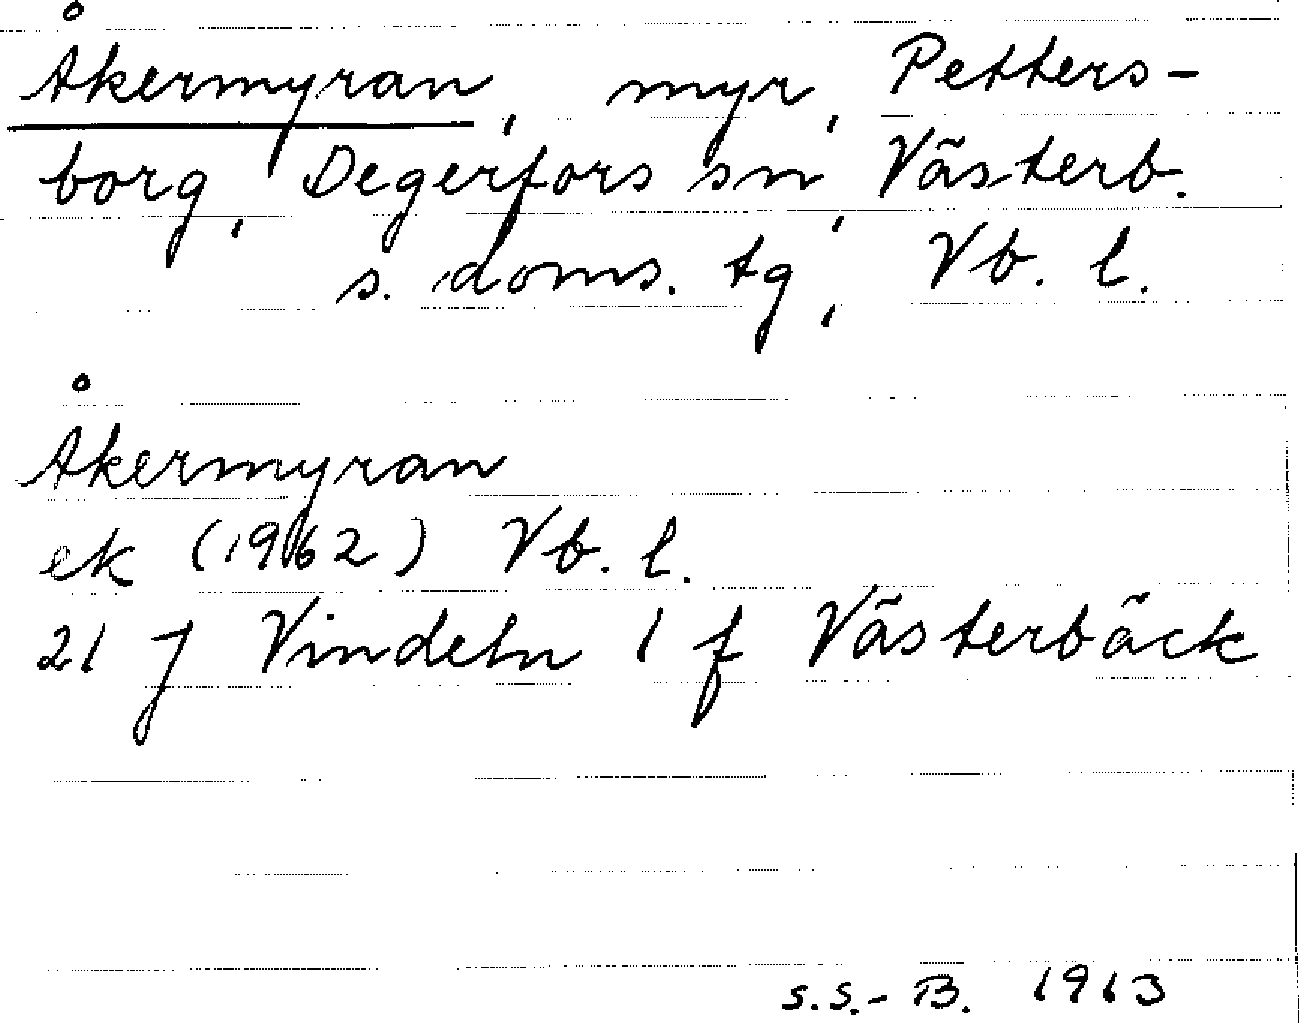 Åkermyran, myr, Petters-
borg, Degerfors sn, Västerb.
s. doms. tg, Vb. l.
Åkermyran
ek (1962) Vb. l.
21 J Vindeln 1 f Västerbäck
S.S.-B. 1913